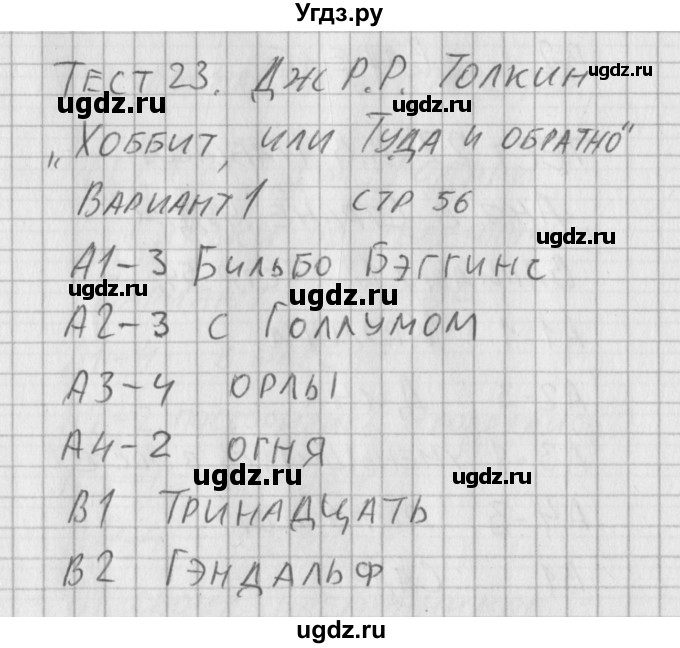 Угдз.ру
Тест 23. Дж Р.Р. Толкин
ugdz.ru
ugdz.ru
„Хоббит, или Туда и обратно"
Вариант 1 стр 56
ugdz.ru
А1-3 Бильбо Бэггинс
ugdz.ru
ugdz.ru
А2-3 с Голлумом
А3-4 орлы
А4-2 огня
ugdz.ru
ugdz.ru
В1 Тринадцать
В2 Гэндальф
ugdz.ru
ugdz.ru